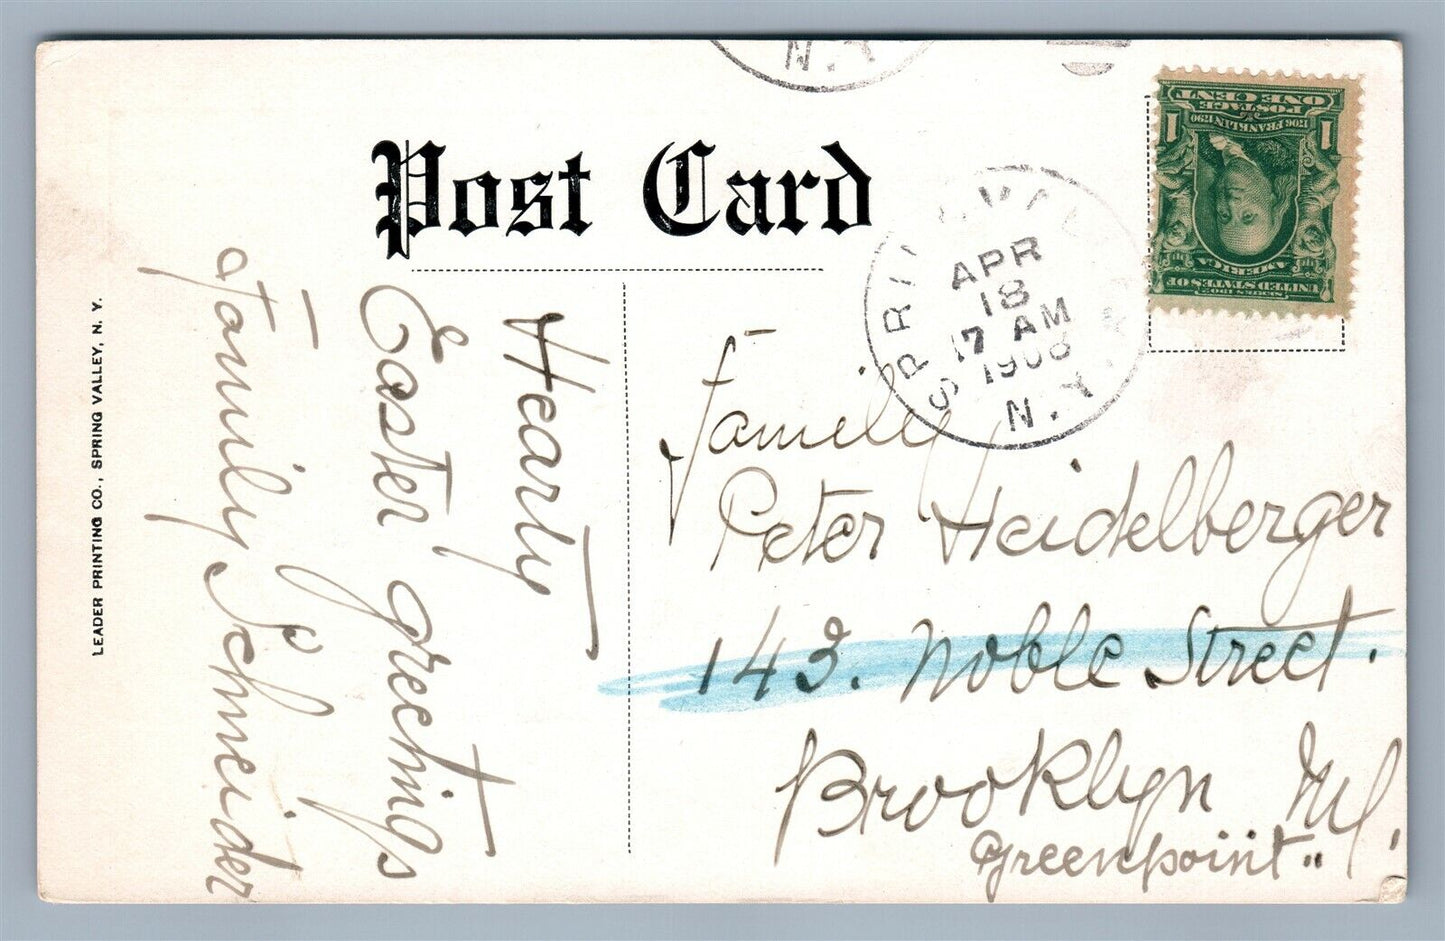 N.Y.
Post Card
SPRING VALLEY
APR
18
7 AM
1908
N.Y.
ONE CENT
POSTAGE
1706 FRANKLIN 1790
1 1
SERIES 1902
UNITED STATES OF
AMERICA
LEADER PRINTING CO., SPRING VALLEY, N. Y.
Hearty
Easter greetings
Family Schneider
Family
Peter Heidelberger
143. Noble Street.
Brooklyn N.Y.
Greenpoint"